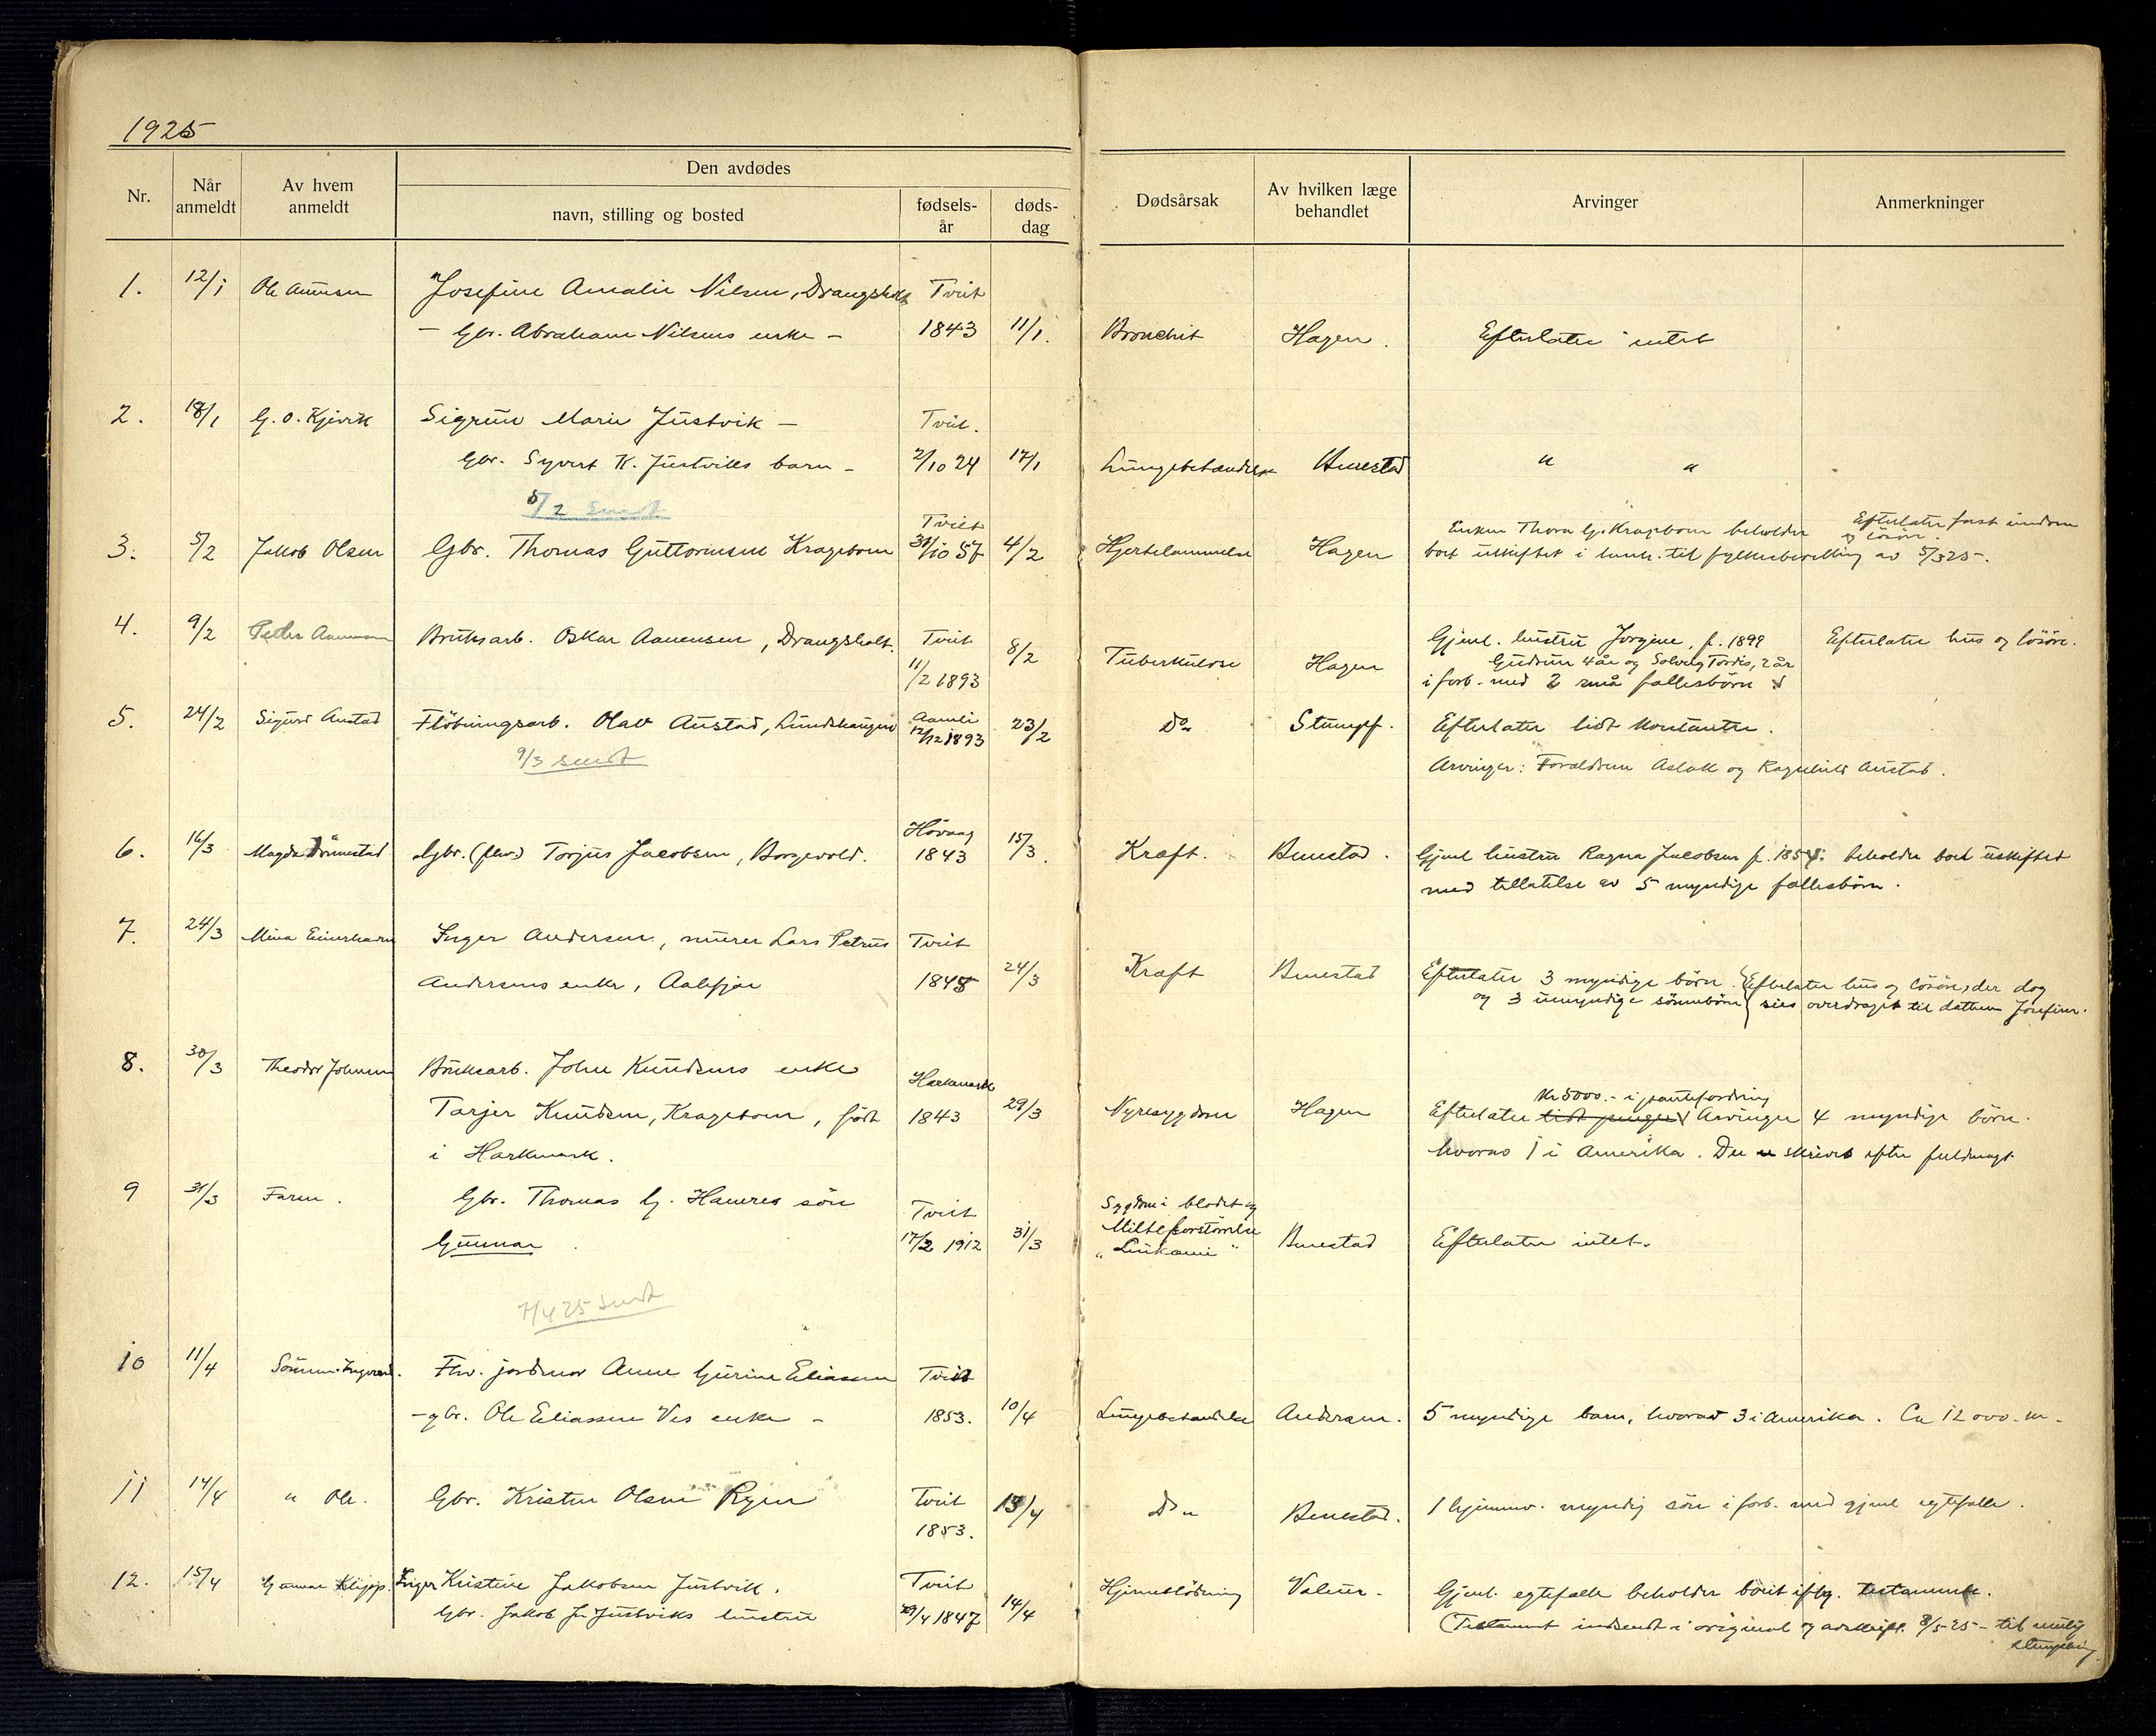 1925
Nr.
Når anmeldt
Av hvem anmeldt
Den avdødes
navn, stilling og bosted
fødsels-år
døds-dag
Dødsårsak
Av hvilken læge behandlet
Arvinger
Anmerkninger
1. 12/1 Ole Josefine Amalie Nilsen, Drangsholt Tveit
- Gbr. Abraham Nilsens enke - 1843 11/1. Bronchit Hagen. Efterlater intet
2. 18/1 G. O. Kjevik Sigrun Marie Justvik - Tveit.
Gbr. Syvert K. Justviks barn - 2/10 24 17/1 Lungebetændelse Benestad " "
5/2 sendt
3. 5/2 Jakob Olsen Gbr. Thomas Guttormsen Kragebom Tveit 31/10 57 4/2 Hjertelammelse Hagen Enken Thora G. Kragebom beholder Efterlater fast eiendom og lösöre.
boet uskiftet i henh. til fylkesbevilling av 5/3 25.
4. 9/2 Peder Aanensen Bruksarb. Oskar Aanensen, Drangsholt. Tveit 8/2 Gjenl. hustru Jorgine, f. 1899 Efterlater hus og lösöre.
11/2 1893 Tuberkulose Hagen Gudrun 4 år og Solveig Tordis, 2 år
i forb. med 2 små fellesbörn
5. 24/2 Sigurd Austad Flötningsarb. Olav Austad, Aamli 12/12 1893 23/2 Do Stumpf. Efterlater lidt kontanter.
9/3 sendt
Arvinger: Forældrene Aslak og Ragnhild Austad.
6. 16/3 Magda Gbr. (fhv.) Torjus Jacobsen, Borgevold. Hövaag 1843 15/3. Kræft. Benestad. Gjenl hustru Ragna Jacobsen f. 1854: beholder boet uskiftet
med tillatelse av 5 myndige fællesbörn.
7. 24/3 Mina Inger Andersen, murer Lars Petrus Tveit
Andersens enke, Aalefjær 1848 24/3 Kræft Benestad Efterlater 3 myndige börn. Efterlater hus og lösöre, der dog
og 3 umyndige sönnebörn sies overdraget til datteren Josefine.
8. 30/3 Theodor Johnsen Bruksarb. John Knudsens enke Harkmark
Tarjer Knudsen, Kragebom, födt 1843 29/3 Nyresygdom Hagen Kr 5000.- i pantefordring
Efterlater lidt penger Arvinger 4 myndige börn.
i Harkmark. hvorav 1 i Amerika. Der er skrevet efter fuldmagt
9 31/3 Faren. Gbr. Thomas G. Hamres sön Tveit Sygdom i blodet og
Gunnar 17/2 1912 31/3 Milteforstörrelse Benestad Efterlater intet.
"Leukæmi"
7/4 25 sendt
10 11/4 Sönnen Fhv. jordmor Anne Gurine Eliassen Tveit
- gbr. Ole Eliassen Ves enke - 1853. 10/4 Lungebetændelse Andersen. 5 myndige barn, hvorav 3 i Amerika. Ca 12 000.-
11 14/4 " Ole. Gbr. Kristen Olsen Ryen Tveit 13/4 Do Benestad. 1 hjemmev. myndig sön i forb. med gjenl egtefælle.
1853.
12. 15/4 Gunnar Inger Kristine Jakobsen Justvik. Tveit
Gbr. Jakob Justviks hustru 29/4 1847 14/4 Hjerneblödning Valeur. Gjenl. egtefælle beholder boet iflg. testamente.
(Testament indsendt i original og avskrift. 8/5-25 - til mulig
stempling.